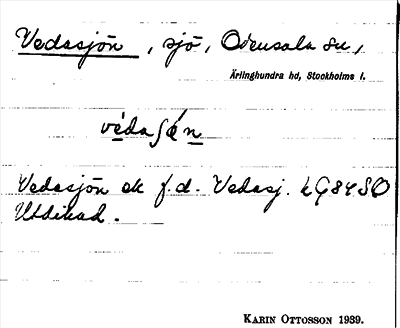 Vedasjön, sjö, Odensala sn,
Ärlinghundra hd, Stockholms l.
védaʃǿn
Vedasjön ek f.d. Vedasj. kG84SO
Utdikad.
KARIN OTTOSSON 1939.